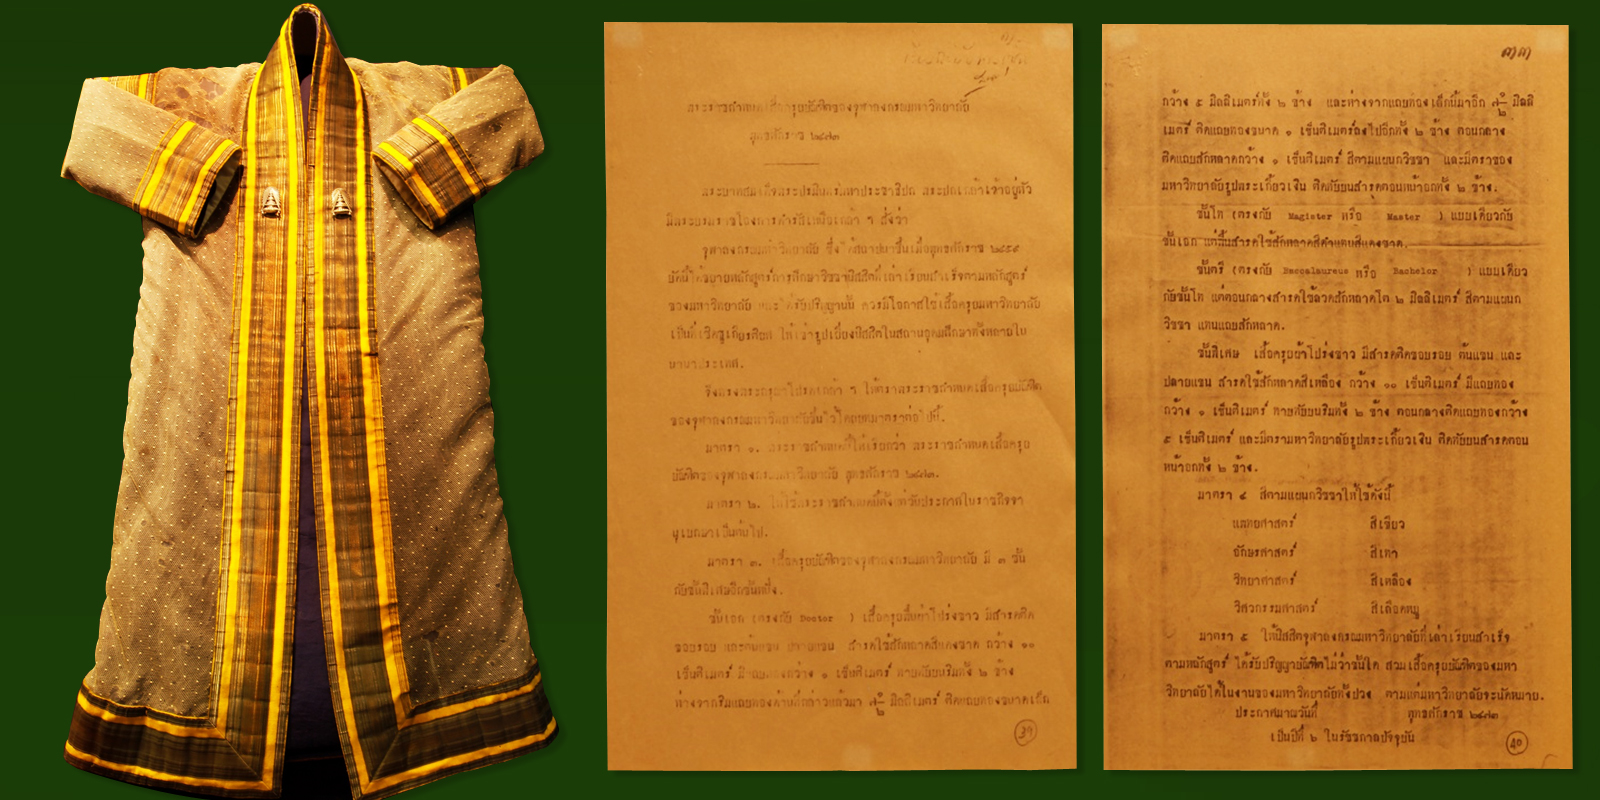 พระราชกำหนดเสื้อครุยบัณฑิตของจุฬาลงกรณมหาวิทยาลัย
พุทธศักราช ๒๔๗๓
พระบาทสมเด็จพระปรมินทรมหาประชาธิปก พระปกเกล้าเจ้าอยู่หัว
มีพระบรมราชโองการดำรัสเหนือเกล้า ฯ สั่งว่า
จุฬาลงกรณมหาวิทยาลัย ซึ่งได้สถาปนาขึ้นเมื่อพุทธศักราช ๒๔๕๙
บัดนี้ได้ขยายหลักสูตร์การศึกษาวิชชามีนิสิตที่เล่าเรียนสำเร็จตามหลักสูตร์
ของมหาวิทยาลัย และได้รับปริญญานั้น ควรมีโอกาสใช้เสื้อครุยมหาวิทยาลัย
เป็นที่เชิดชูเกียรติยศ ให้เข้ารูปเยี่ยงนิสิตในสถานอุดมศึกษาทั้งหลายใน
นานาประเทศ.
จึงทรงพระกรุณาโปรดเกล้า ฯ ให้ตราพระราชกำหนดเสื้อครุยบัณฑิต
ของจุฬาลงกรณมหาวิทยาลัยขึ้นไว้โดยบทมาตราต่อไปนี้.
มาตรา ๑. พระราชกำหนดนี้ให้เรียกว่า พระราชกำหนดเสื้อครุย
บัณฑิตของจุฬาลงกรณมหาวิทยาลัย พุทธศักราช ๒๔๗๓.
มาตรา ๒. ให้ใช้พระราชกำหนดนี้ตั้งแต่วันประกาศในราชกิจจา
นุเบกษาเป็นต้นไป.
มาตรา ๓. เสื้อครุยบัณฑิตของจุฬาลงกรณมหาวิทยาลัย มี ๓ ชั้น
กับชั้นพิเศษอีกชั้นหนึ่ง.
ชั้นเอก (ตรงกับ Doctor ) เสื้อครุยพื้นผ้าโปร่งขาว มีสารดติด
ขอบรอบ และต้นแขน ปลายแขน สารดใช้สักหลาดสีแดงชาด กว้าง ๑๐
เซ็นติเมตร์ มีแถบทองกว้าง ๑ เซ็นติเมตร์ ทาบทับบนริมทั้ง ๒ ข้าง
ห่างจากริมแถบทองด้านที่กล่าวแล้วมา ๗ ๑/๒ มิลลิเมตร์ ติดแถบทองขนาดเล็ก
39
๓๗
กว้าง ๕ มิลลิเมตร์ทั้ง ๒ ข้าง และห่างจากแถบทองเล็กนี้มาอีก ๗ ๑/๒ มิลลิ
เมตร์ ติดแถบทองขนาด ๑ เซ็นติเมตร์ลงไปอีกทั้ง ๒ ข้าง ตอนกลาง
ติดแถบสักหลาดกว้าง ๑ เซ็นติเมตร์ สีตามแผนกวิชชา และมีตราของ
มหาวิทยาลัยรูปพระเกี้ยวเงิน ติดทับบนสารดตอนหน้าอกทั้ง ๒ ข้าง.
ชั้นโท (ตรงกับ Magister หรือ Master ) แบบเดียวกับ
ชั้นเอก แต่พื้นสารดใช้สักหลาดสีดำแทนสีแดงชาด.
ชั้นตรี (ตรงกับ Baccalaureus หรือ Bachelor ) แบบเดียว
กับชั้นโท แต่ตอนกลางสารดใช้ลวดสักหลาดโต ๒ มิลลิเมตร์ สีตามแผนก
วิชชา แทนแถบสักหลาด.
ชั้นพิเศษ เสื้อครุยผ้าโปร่งขาว มีสารดติดขอบรอบ ต้นแขน และ
ปลายแขน สารดใช้สักหลาดสีเหลือง กว้าง ๑๐ เซ็นติเมตร์ มีแถบทอง
กว้าง ๑ เซ็นติเมตร์ ทาบทับบนริมทั้ง ๒ ข้าง ตอนกลางติดแถบทองกว้าง
๕ เซ็นติเมตร์ และมีตรามหาวิทยาลัยรูปพระเกี้ยวเงิน ติดทับบนสารดตอน
หน้าอกทั้ง ๒ ข้าง.
มาตรา ๔ สีตามแผนกวิชชาให้ใช้ดังนี้
แพทยศาสตร์ สีเขียว
อักษรศาสตร์ สีเทา
วิทยาศาสตร์ สีเหลือง
วิศวกรรมศาสตร์ สีเลือดหมู
มาตรา ๕ ให้นิสสิตจุฬาลงกรณมหาวิทยาลัยที่เล่าเรียนสำเร็จ
ตามหลักสูตร์ ได้รับปริญญาบัณฑิตไม่ว่าชั้นใด สวมเสื้อครุยบัณฑิตของมหา
วิทยาลัยได้ในงานของมหาวิทยาลัยทั้งปวง ตามแต่มหาวิทยาลัยจะนัดหมาย.
ประกาศมาณวันที่ พุทธศักราช ๒๔๗๓
เป็นปีที่ ๖ ในรัชชกาลปัจจุบัน
40